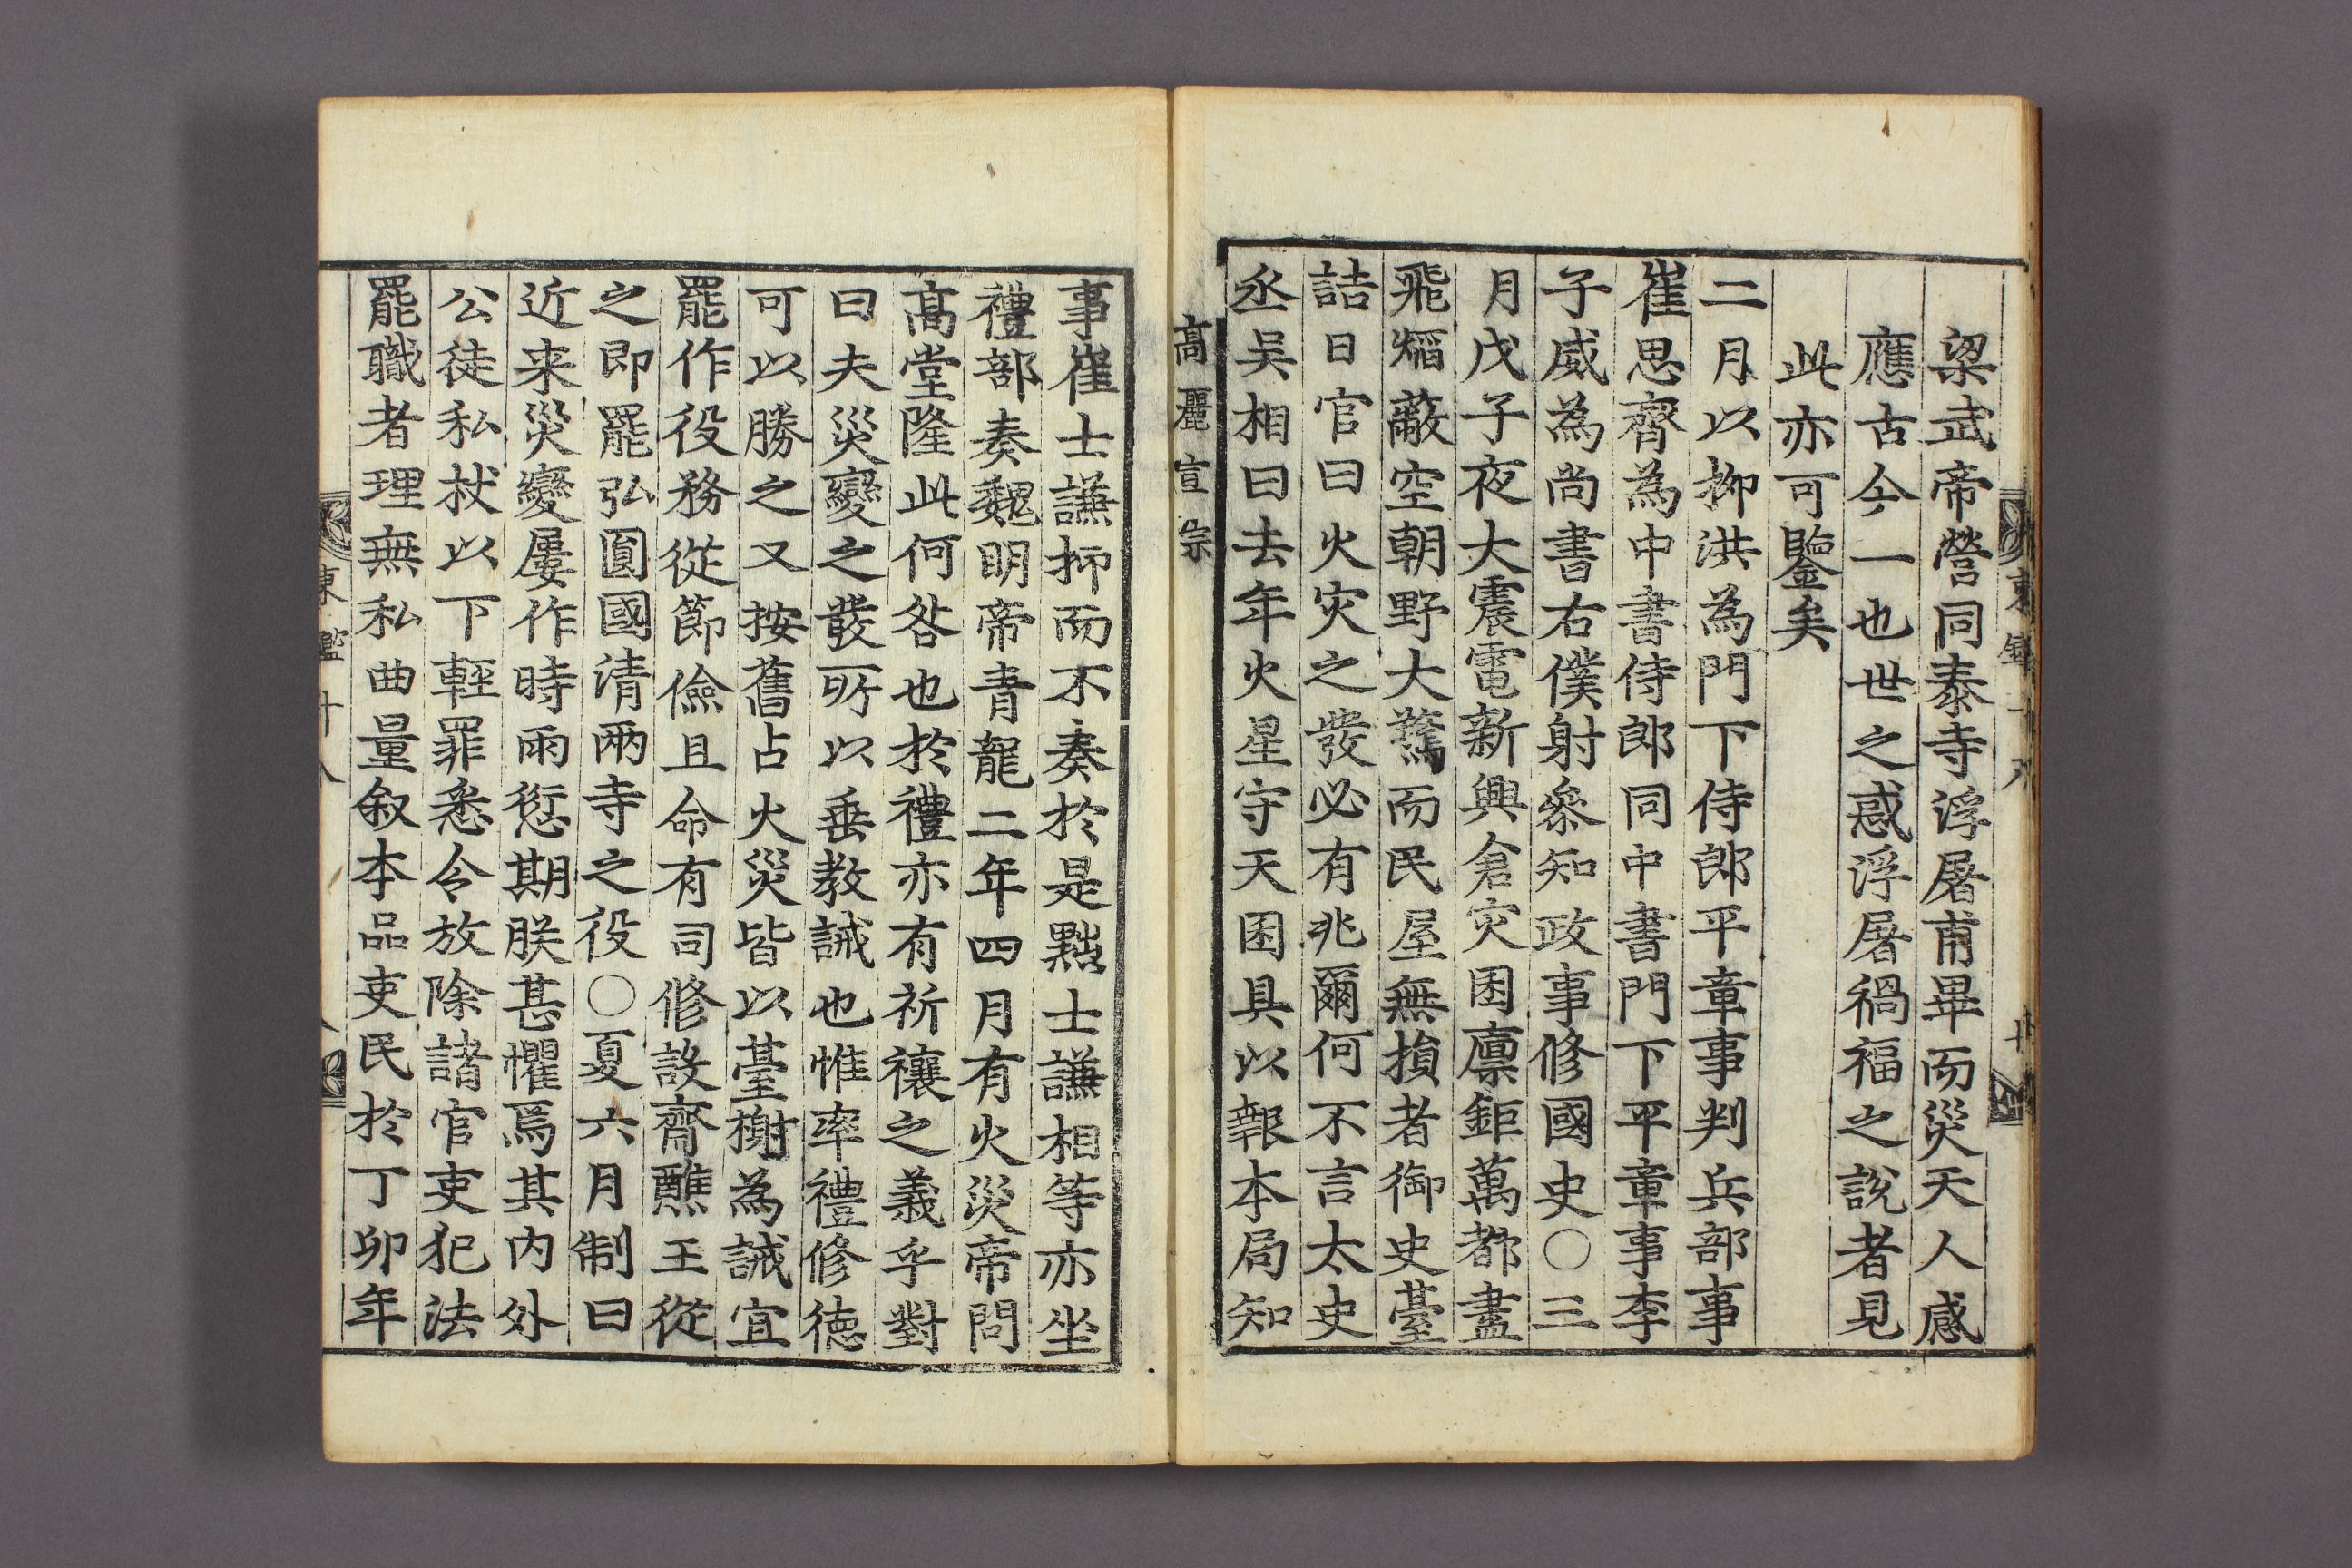 梁武帝營同泰寺浮屠甫畢而災天人感
應古今一也世之惑浮屠禍福之說者見
此亦可鑒矣
二月以柳洪為門下侍郎平章事判兵部事
崔思齊為中書侍郎同中書門下平章事李
子威為尚書右僕射叅知政事修國史〇三
月戊子夜大震電新興倉灾囷廩鉅萬都盡
飛熖蔽空朝野大驚而民屋無損者御史臺
詰日官曰火灾之發必有兆爾何不言太史
丞吴相曰去年火星守天囷具以報本局知
高麗宣宗
事崔士謙抑而不奏於是黜士謙相等亦坐
禮部奏魏明帝青龍二年四月有火災帝問
高堂隆此何咎也於禮亦有祈禳之義乎對
曰夫災變之發所以垂教誡也惟率禮修德
可以勝之又按舊占火災皆以臺榭為誡宜
罷作役務從節儉且命有司修設齋醮王從
之即罷弘圓國清兩寺之役〇夏六月制曰
近来災變屢作時雨愆期朕甚懼焉其内外
公徒私杖以下輕罪悉令放除諸官吏犯法
罷職者理無私曲量叙本品吏民於丁卯年
東鑑十八